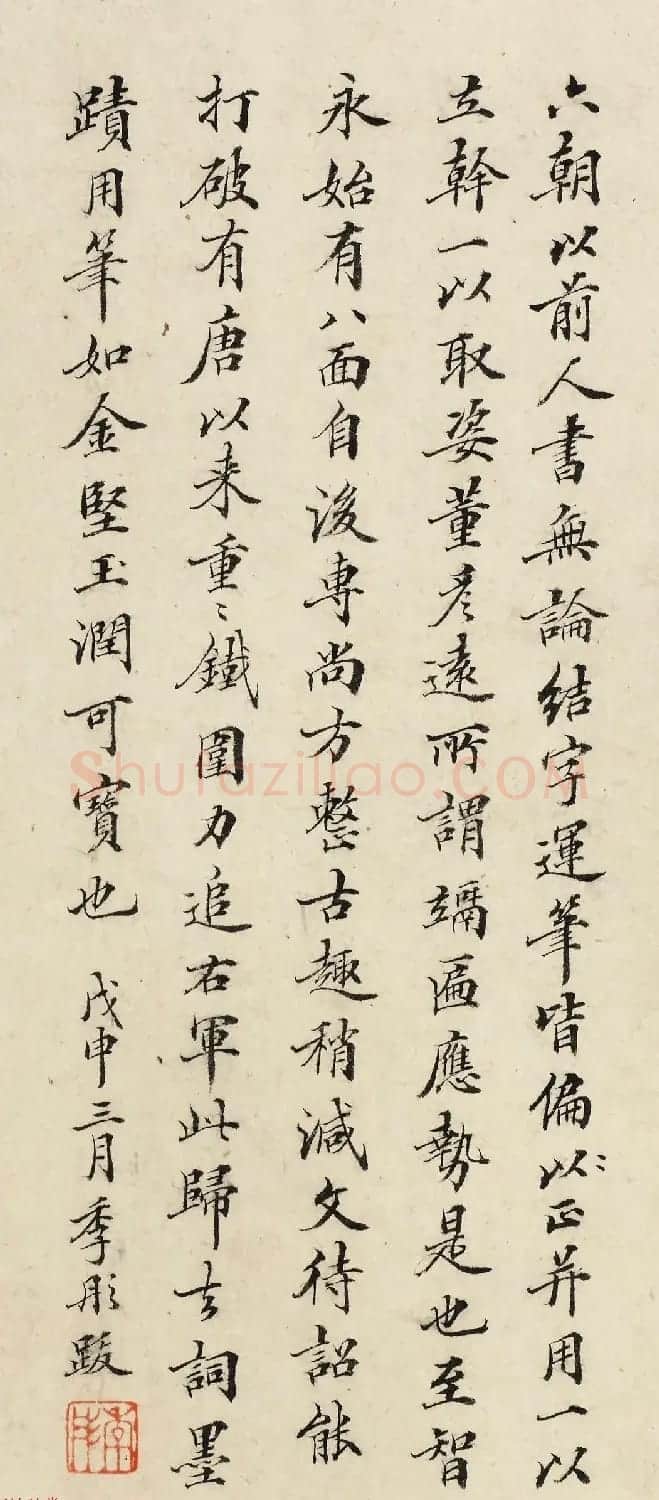 六朝以前人書無論結字運筆皆偏以正并用一以
立幹一以取姿董彥遠所謂匾應勢是也至智
永始有八面自後專尚方整古趣稍減文待詔能
打破有唐以来重〻鐵圍力追右軍此歸去詞墨
蹟用筆如金堅玉潤可寶也 戊申三月季彤跋
Shufaziliao.COM